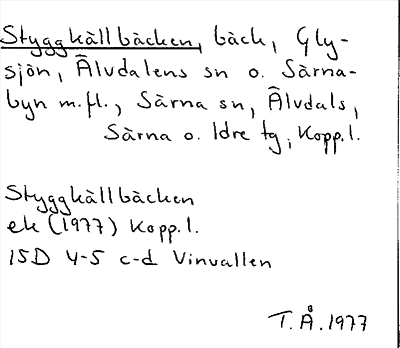 Styggkällbäcken, bäck, Gly-
sjön, Älvdalens sn o. Särna-
byn m.fl., Särna sn, Älvdals,
Särna o. Idre tg, Kopp.l.
Styggkällbäcken
ek (1977) Kopp.l.
15D 4-5 c-d Vinvallen
T.Å. 1977